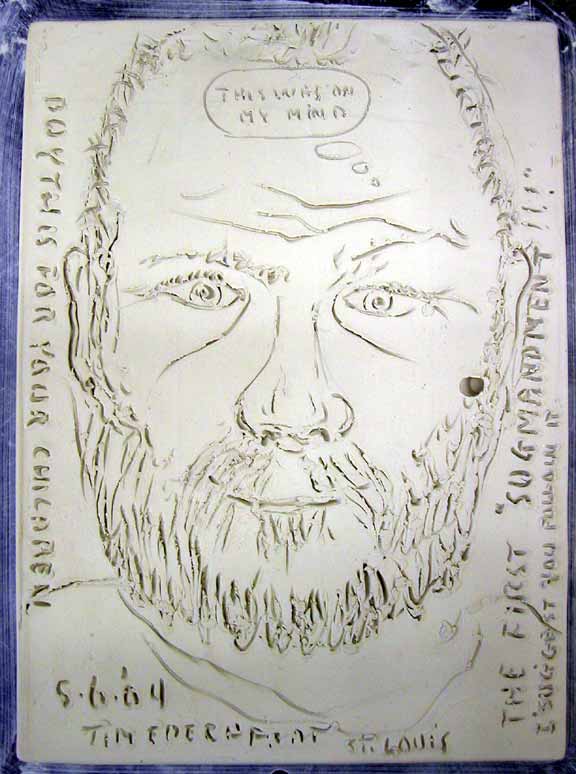 THIS WAS ON
MY MIND
THIS FOR YOUR CHILDREN!
THE FIRST "SUGMANDMENT!!!"
I SUGGEST YOU IT
5.6.04
TIM ST. LOUIS